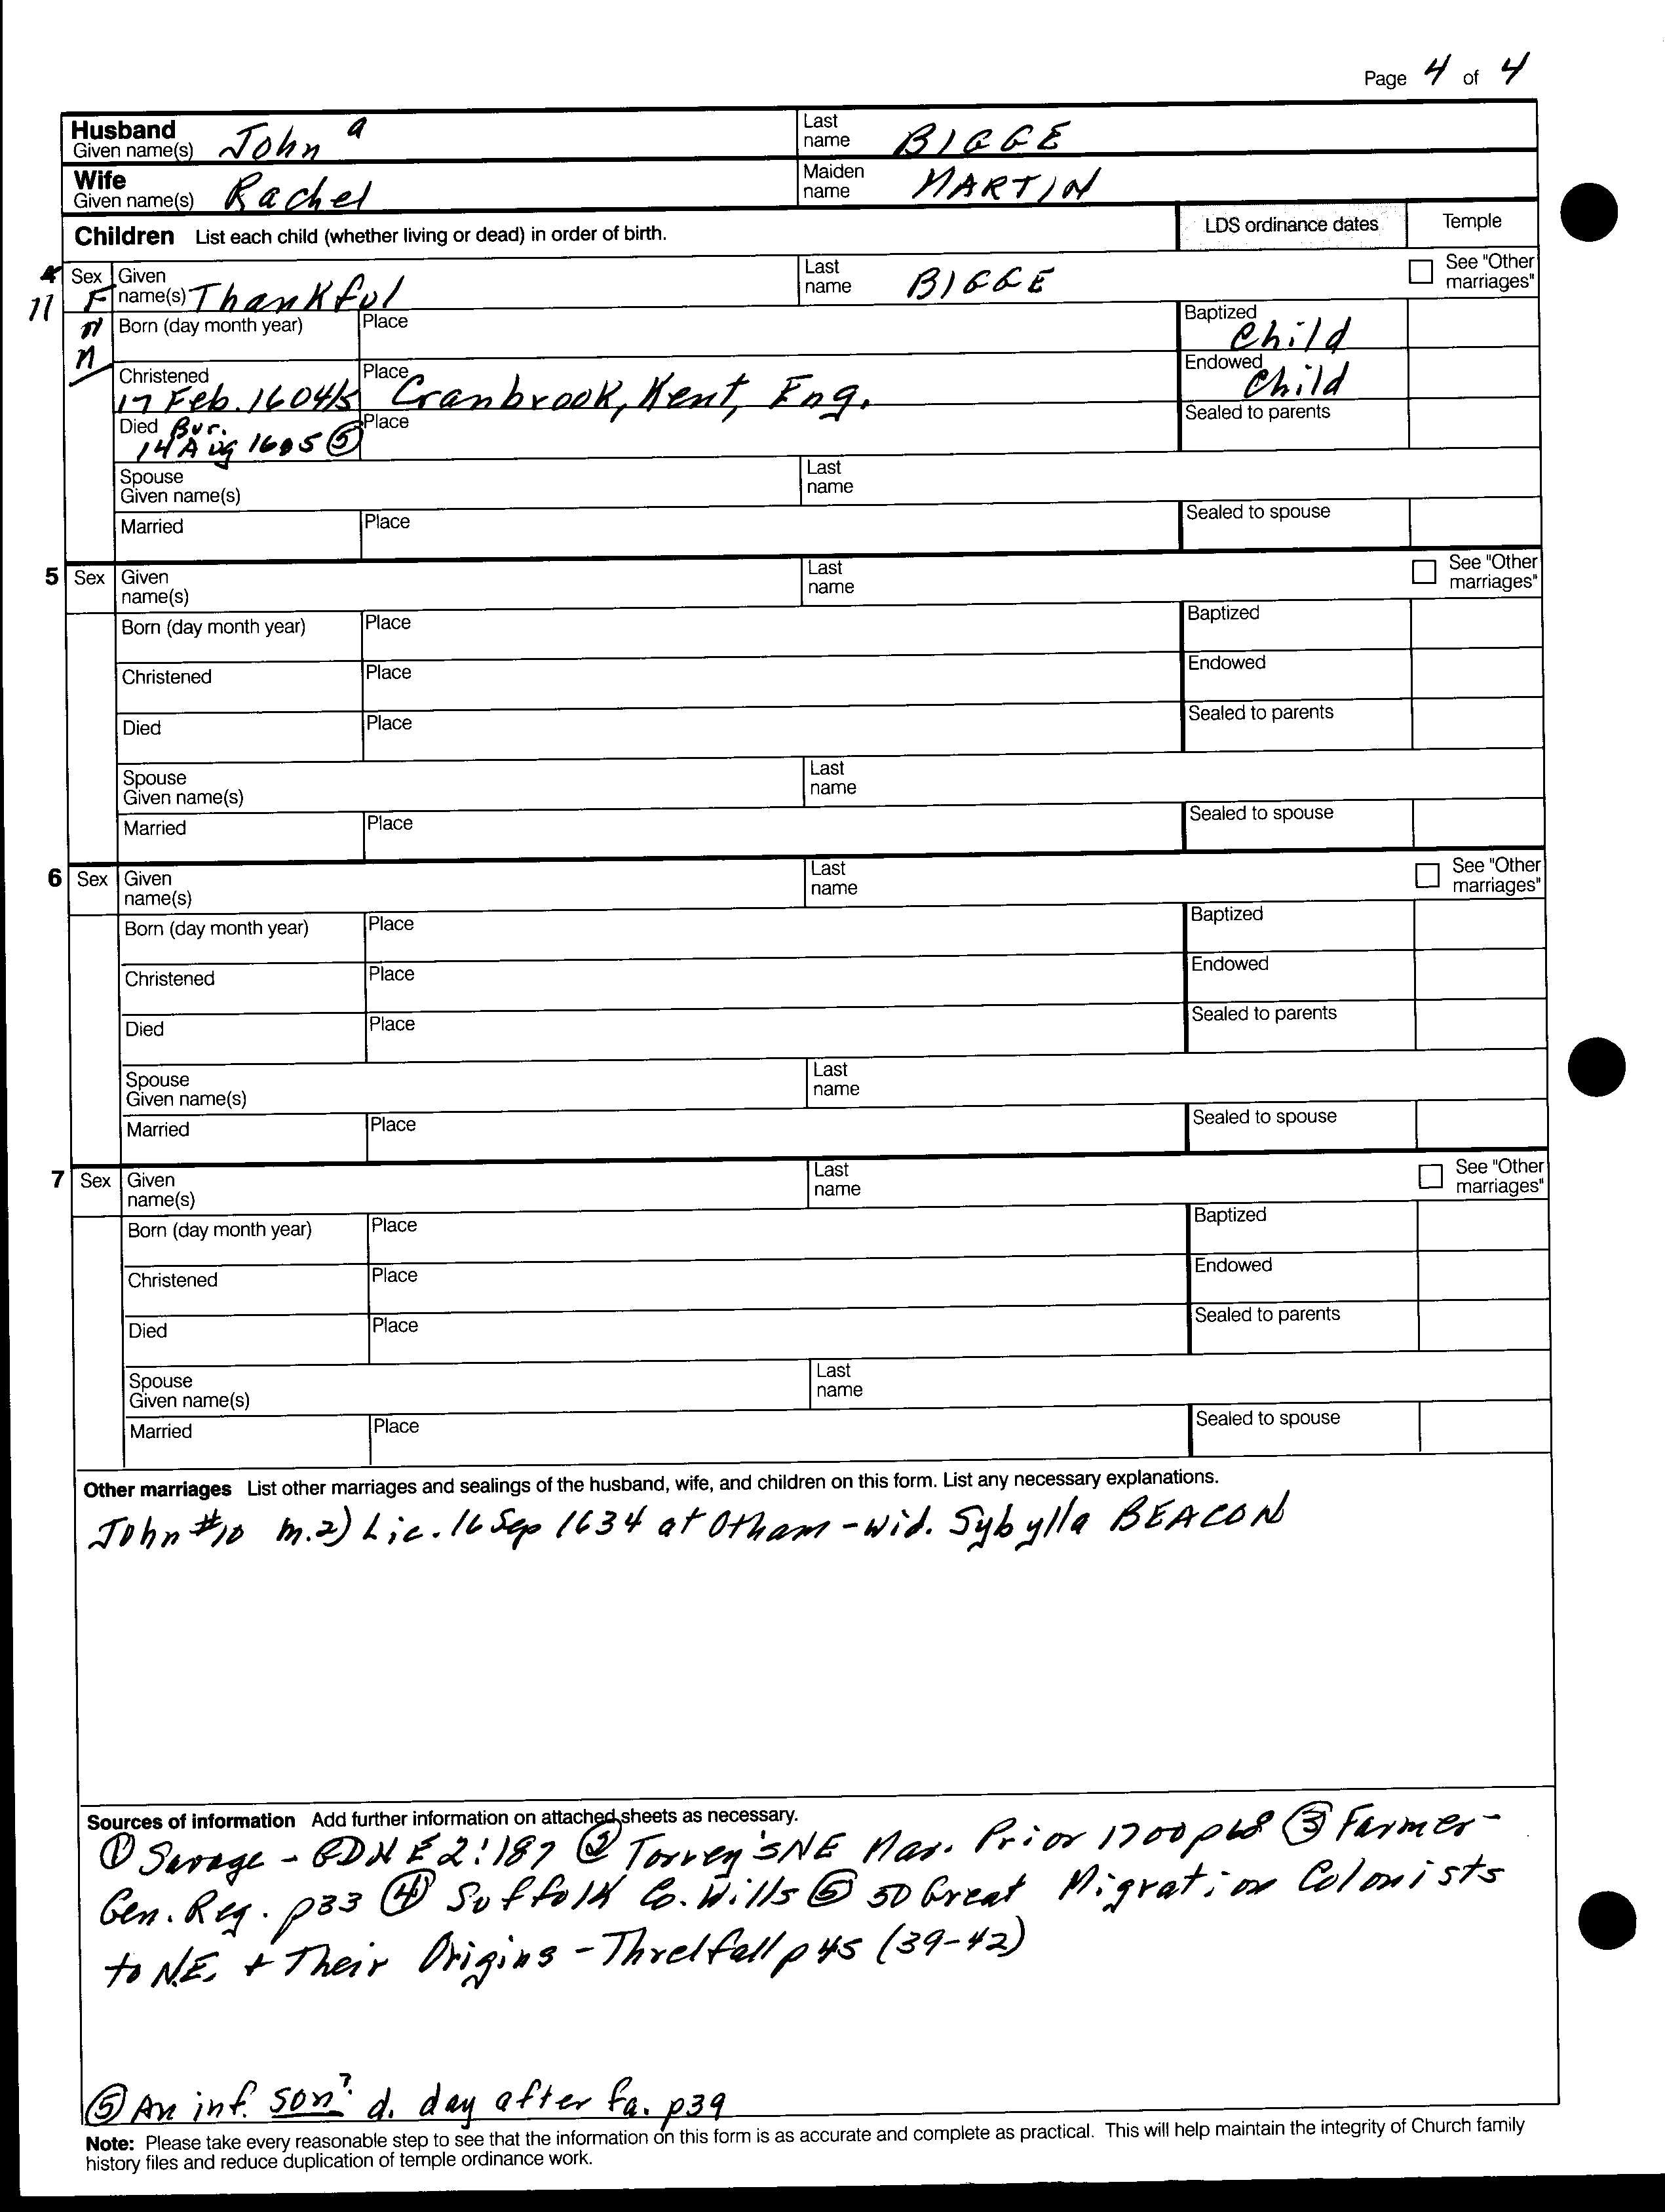 Page 4 of 4
Husband Given name(s) John a Last name BIGGE
Wife Given name(s) Rachel Maiden name MARTIN
Children List each child (whether living or dead) in order of birth. LDS ordinance dates Temple
11 Sex F Given name(s) Thankful Last name BIGGE See "Other marriages"
Born (day month year) Place Baptized Child
Christened 17 Feb. 1604/5 Place Cranbrook, Kent, Eng. Endowed Child
Died Bur. 14 Aug 1605 ⑤ Place Sealed to parents
Spouse Given name(s) Last name
Married Place Sealed to spouse
5 Sex Given name(s) Last name See "Other marriages"
Born (day month year) Place Baptized
Christened Place Endowed
Died Place Sealed to parents
Spouse Given name(s) Last name
Married Place Sealed to spouse
6 Sex Given name(s) Last name See "Other marriages"
Born (day month year) Place Baptized
Christened Place Endowed
Died Place Sealed to parents
Spouse Given name(s) Last name
Married Place Sealed to spouse
7 Sex Given name(s) Last name See "Other marriages"
Born (day month year) Place Baptized
Christened Place Endowed
Died Place Sealed to parents
Spouse Given name(s) Last name
Married Place Sealed to spouse
Other marriages List other marriages and sealings of the husband, wife, and children on this form. List any necessary explanations.
John #10 m.2) Lic. 16 Sep 1634 at Otham - wid. Sybylla BEACON
Sources of information Add further information on attached sheets as necessary.
① Savage - GDNE 2:187 ② Torrey's NE Mar. Prior 1700 p68 ③ Farmer-
Gen. Reg. p33 ④ Suffolk Co. Wills ⑤ 50 Great Migration Colonists
to N.E. + Their Origins - Threlfall p45 (39-42)
⑤ An inf. son? d. day after fa. p39
Note: Please take every reasonable step to see that the information on this form is as accurate and complete as practical. This will help maintain the integrity of Church family
history files and reduce duplication of temple ordinance work.